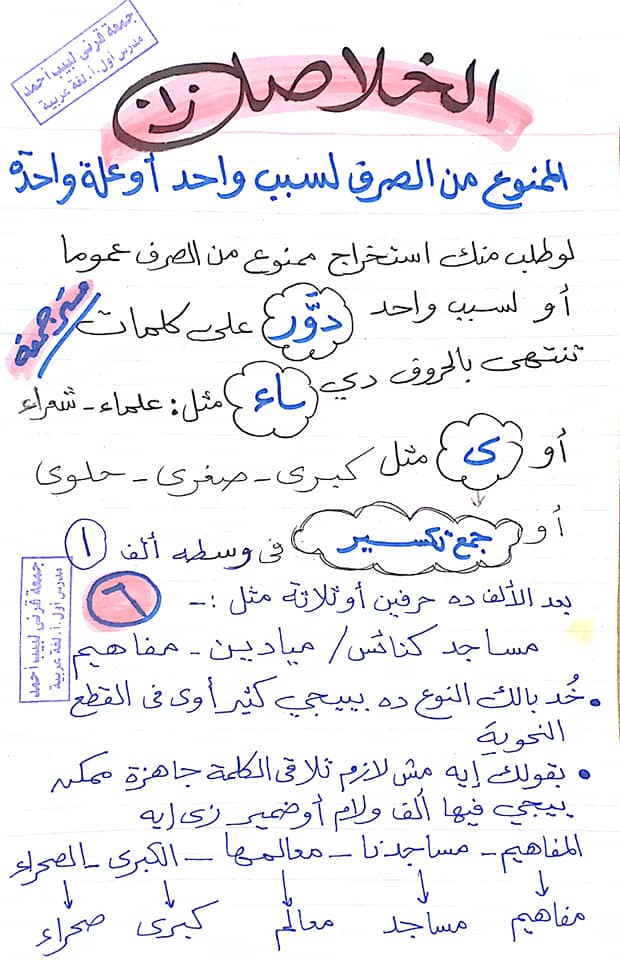 جمعة قرنى لبيب أحمد
مدرس أول.أ. لغة عربية
الخلاصة
الممنوع من الصرف لسبب واحد أو علة واحدة
لو طلب منك استخراج ممنوع من الصرف عموما
أو لسبب واحد دَوَّر على كلمات
تنتهى بالحروف دي ـاء مثل: علماء - شعراء
أو ى مثل كبرى - صغرى - حلوى
أو جمع تكسير فى وسطه ألف ا
بعد الألف ده حرفين أو ثلاثة مثل :-
٦
مساجد كنائس / ميادين - مفاهيم
جمعة قرنى لبيب أحمد
مدرس أول.أ. لغة عربية
• خُد بالك النوع ده بييجي كتير أوى فى القطع
النحوية
• بقولك إيه مش لازم تلاقى الكلمة جاهزة ممكن
ييجي فيها ألف ولام أو ضمير زى إيه
المفاهيم - مساجدنا - معالمها - الكبرى - الصحراء
مفاهيم مساجد معالم كبرى صحراء